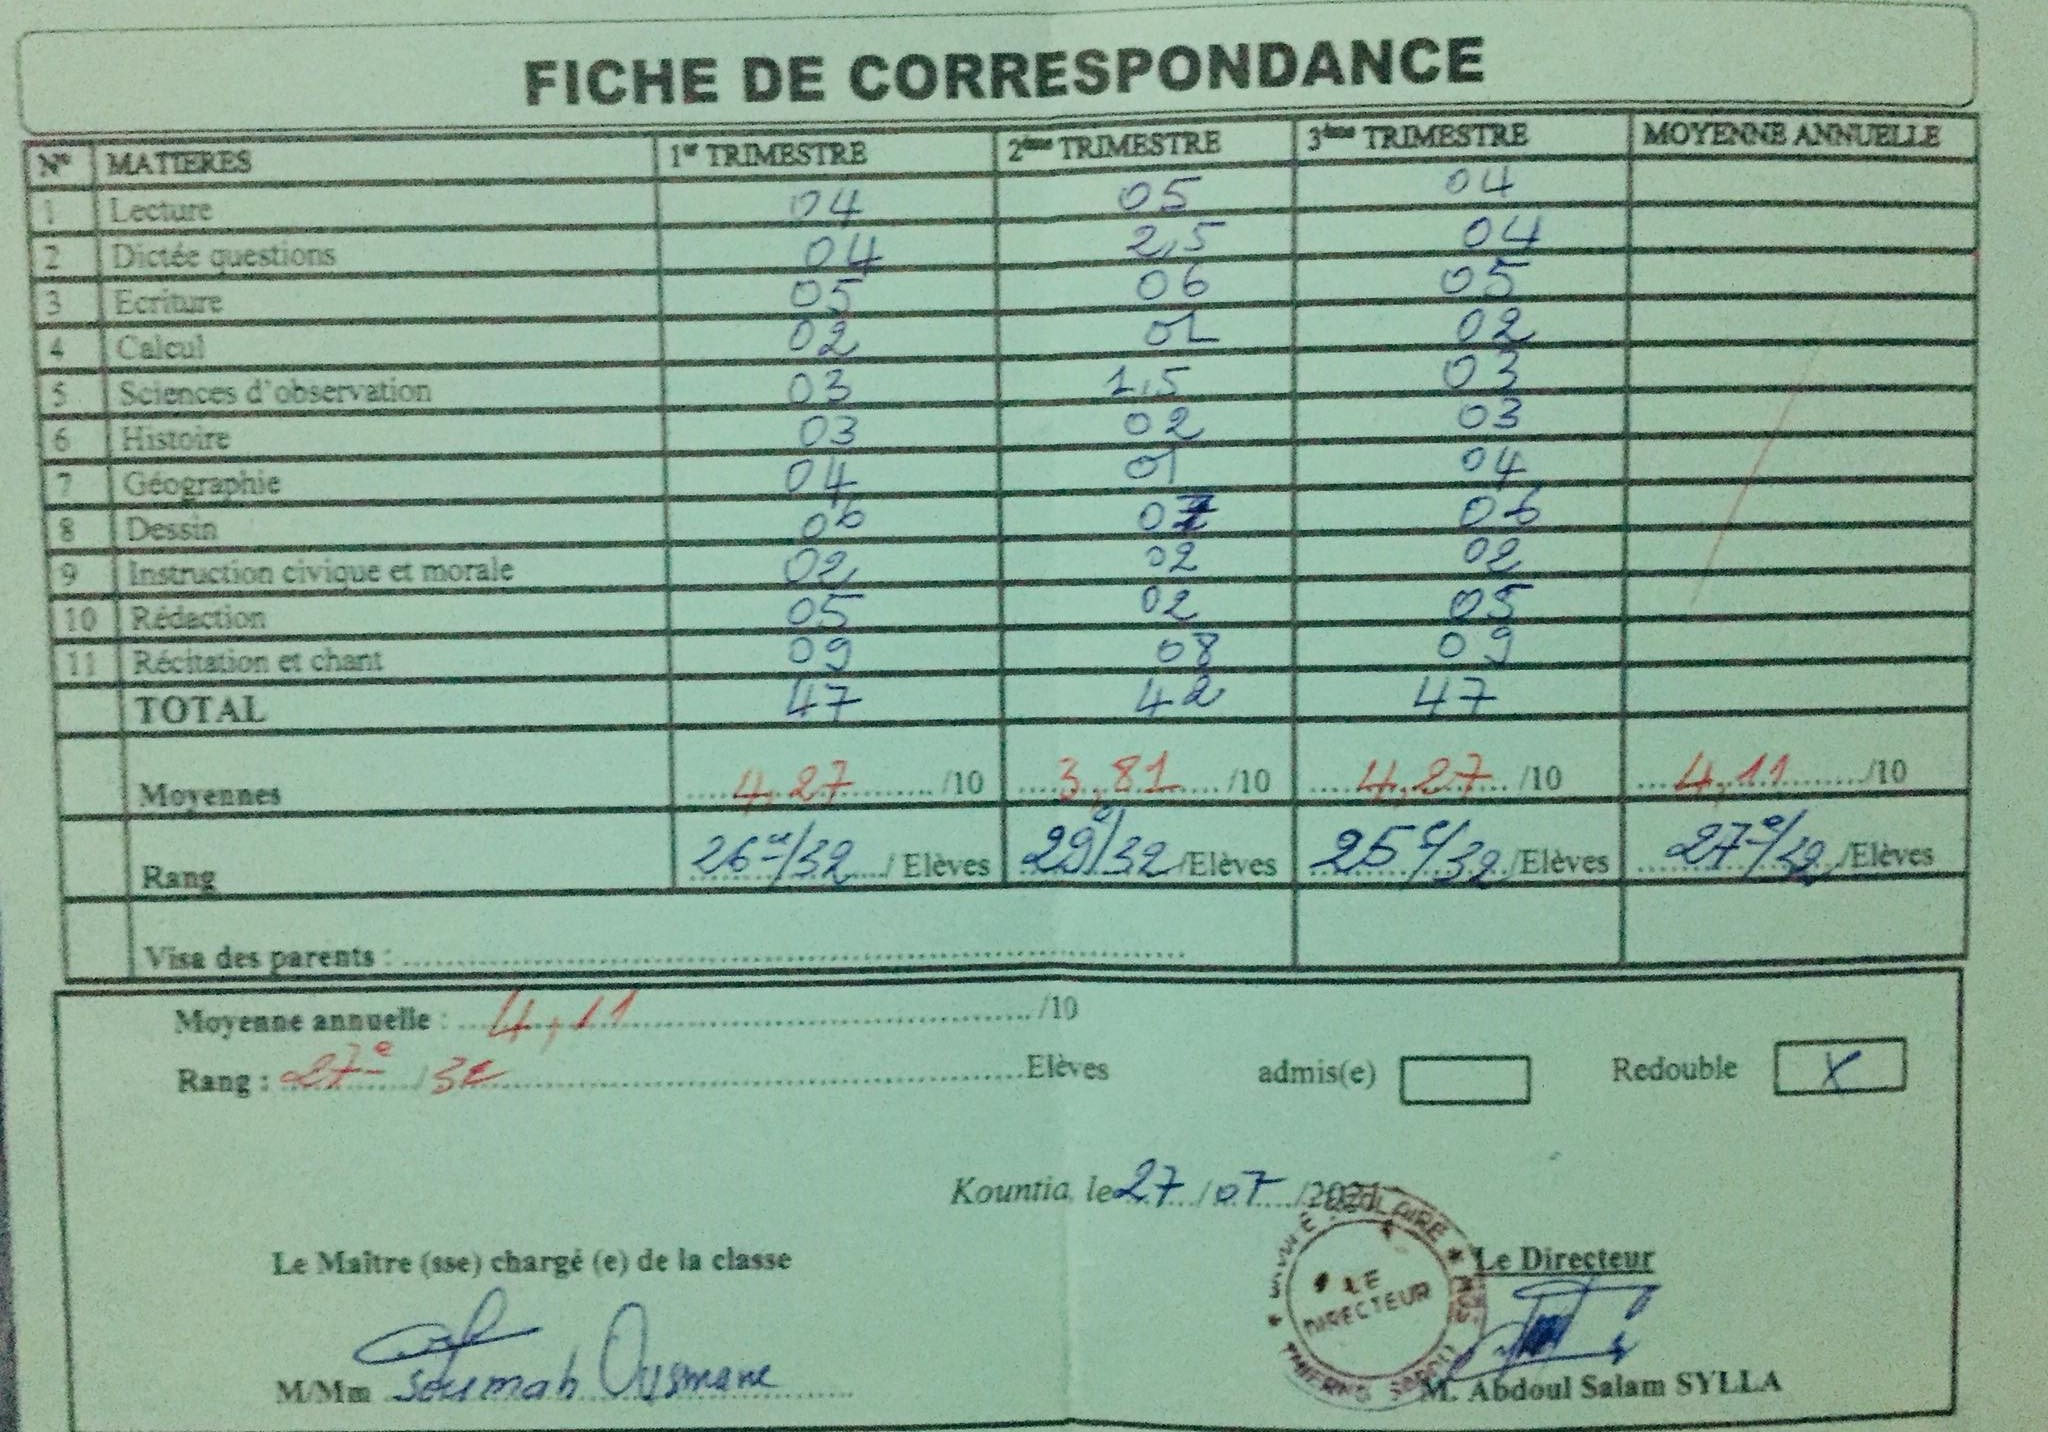 FICHE DE CORRESPONDANCE
N° MATIERES 1er TRIMESTRE 2ème TRIMESTRE 3ème TRIMESTRE MOYENNE ANNUELLE
1 Lecture 04 05 04
2 Dictée questions 04 2,5 04
3 Ecriture 05 06 05
4 Calcul 02 01 02
5 Sciences d'observation 03 1,5 03
6 Histoire 03 02 03
7 Géographie 04 01 04
8 Dessin 06 06
9 Instruction civique et morale 02 02 02
10 Rédaction 05 02 05
11 Récitation et chant 09 08 09
TOTAL 47 42 47
Moyennes 4,27 /10 3,81 /10 4,27 /10 4,11 /10
Rang 26e/32 / Elèves 29e/32 /Elèves 25e/32 /Elèves 27e/32 /Elèves
Visa des parents :
Moyenne annuelle : 4,11 /10
Rang : 27e / 32 Elèves admis(e) Redouble X
Kountia, le 27 / 07 /2021
Le Maître (sse) chargé (e) de la classe
Le Directeur
LE
DIRECTEUR
M/Mm Soumah Ousmane
M. Abdoul Salam SYLLA